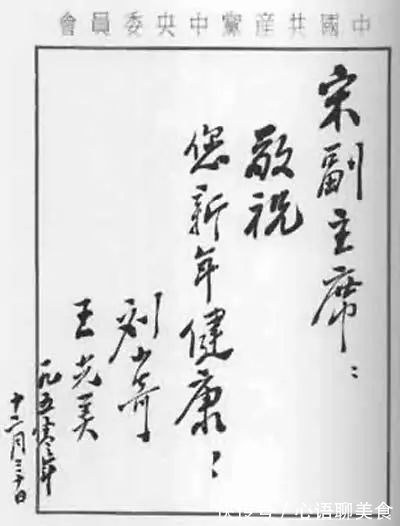 中國共産黨中央委員會
宋副主席：
敬祝
您新年健康！
刘少奇
王光美
一九五零年
十二月三十日
搜狐号/心语聊美食